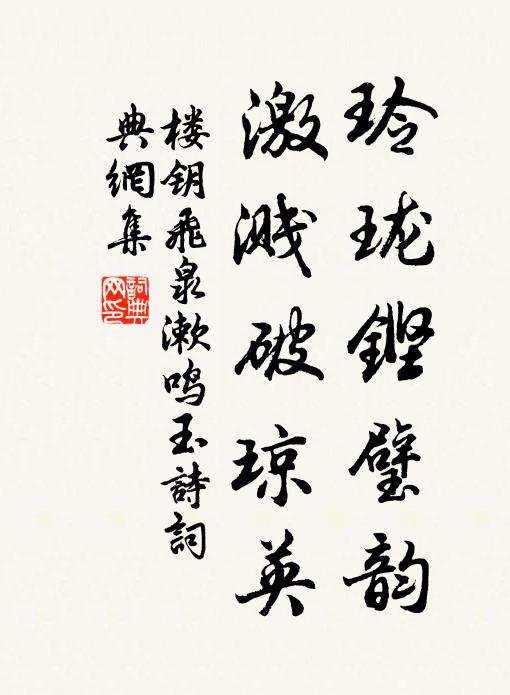 玲珑鏗璧韵
激溅破琼英
楼钥飛泉漱鸣玉詩詞
典網集
詞典
网印